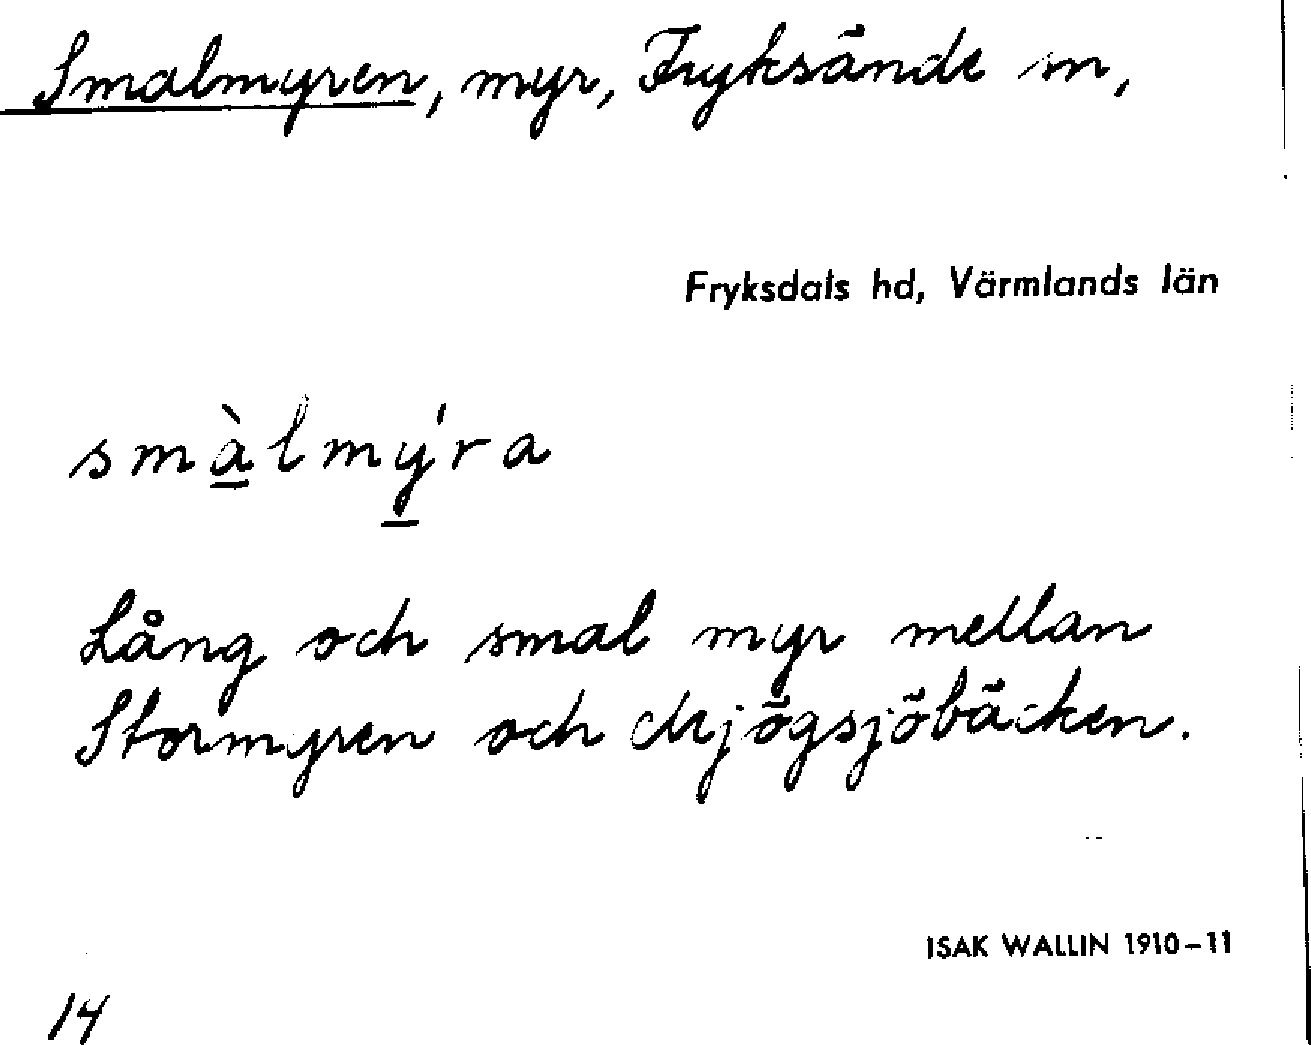 Smalmyren, myr, Fryksände sn,
Fryksdals hd, Värmlands län
smàlmýra
Lång och smal myr mellan
Stormyren och
ISAK WALLIN 1910–11
14